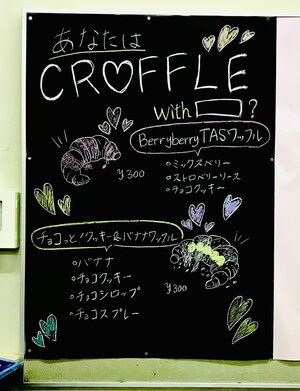 あなたは
CR♡FFLE
with □ ?
BerryberryTASワッフル
¥300
・ミックスベリー
・ストロベリーソース
・チョコクッキー
チョコっと!クッキー&バナナワッフル
・バナナ
・チョコクッキー
・チョコシロップ
・チョコスプレー
¥300